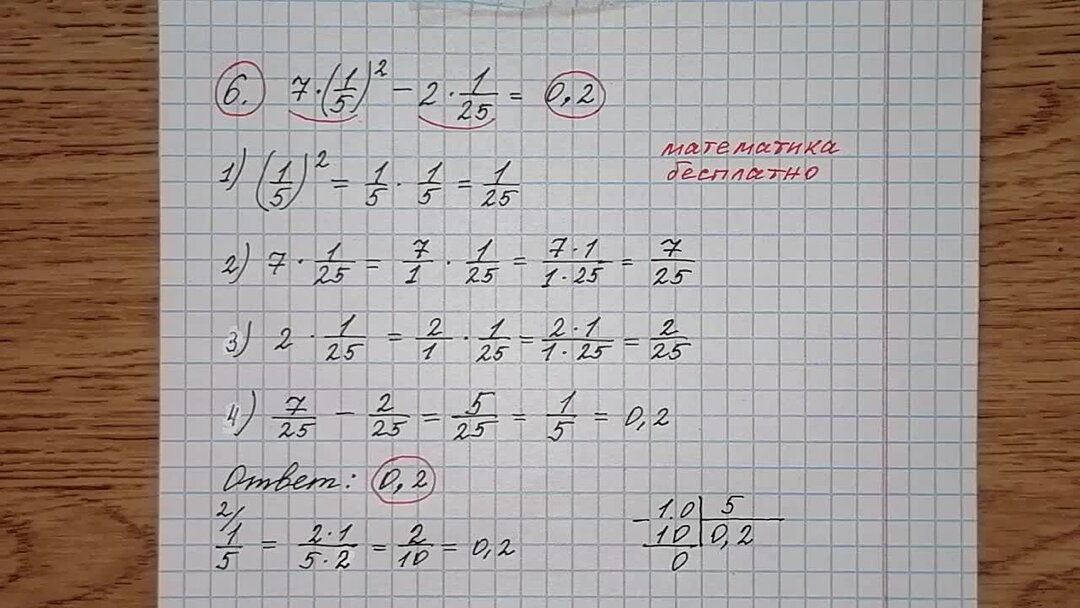 6. 7·(1/5)² − 2·1/25 = 0,2
математика
бесплатно
1) (1/5)² = 1/5 · 1/5 = 1/25
2) 7 · 1/25 = 7/1 · 1/25 = 7·1/1·25 = 7/25
3) 2 · 1/25 = 2/1 · 1/25 = 2·1/1·25 = 2/25
4) 7/25 − 2/25 = 5/25 = 1/5 = 0,2
Ответ: 0,2
2/ 1/5 = 2·1/5·2 = 2/10 = 0,2
1.0 | 5
− 10 | 0,2
0